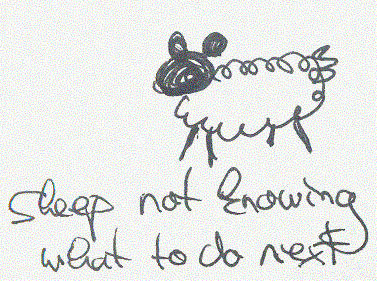 sheep not knowing
what to do next